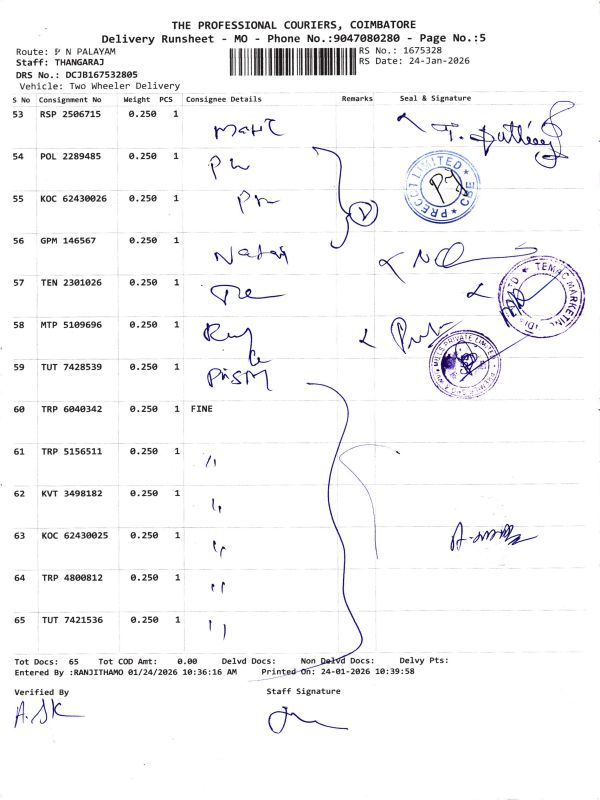 THE PROFESSIONAL COURIERS, COIMBATORE
Delivery Runsheet - MO - Phone No.:9047080280 - Page No.:5
Route: P N PALAYAM
RS No.: 1675328
Staff: THANGARAJ
RS Date: 24-Jan-2026
DRS No.: DCJB167532805
Vehicle: Two Wheeler Delivery
S No Consignment No Weight PCS Consignee Details Remarks Seal & Signature
53 RSP 2506715 0.250 1
54 POL 2289485 0.250 1
PRECOT LIMITED
CBE
55 KOC 62430026 0.250 1
56 GPM 146567 0.250 1
57 TEN 2301026 0.250 1
58 MTP 5109696 0.250 1
MILLS PRIVATE LIMITED
59 TUT 7428539 0.250 1
60 TRP 6040342 0.250 1 FINE
61 TRP 5156511 0.250 1 "
62 KVT 3498182 0.250 1 "
63 KOC 62430025 0.250 1 "
64 TRP 4800812 0.250 1 "
65 TUT 7421536 0.250 1 "
Tot Docs: 65 Tot COD Amt: 0.00 Delvd Docs: Non Delvd Docs: Delvy Pts:
Entered By :RANJITHAMO 01/24/2026 10:36:16 AM Printed On: 24-01-2026 10:39:58
Verified By Staff Signature